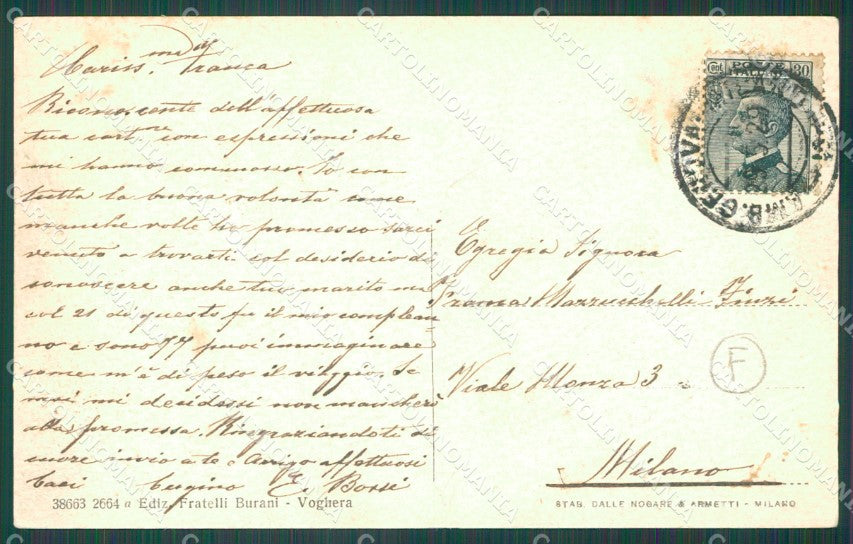 Cariss.ma Franca
Riconoscente dell'affettuosa
tua cart.na con espressioni che
mi hanno commosso. Io con
tutta la buona volontà come
manche volte ho promesso sarei
venuto a trovarti col desiderio di
conoscere anche tuo marito ma
col 21 di questo fu il mio complean-
no e sono 77 puoi immaginare
come m'è di peso il viaggio. Se
mai mi decidessi non mancherò
alla promessa. Ringraziandoti di
cuore invio a te e Arrigo affettuosi
baci Cugino E. Bossi
38663 2664 a Ediz. Fratelli Burani - Voghera
Cent. POSTE ITALIANE 30
AMB. GENOVA
Egregia Signora
Franca Mazzucchelli Finzi
Viale Monza 3
F
Milano
STAB. DALLE NOGARE & ARMETTI - MILANO
CARTOLINOMANIA